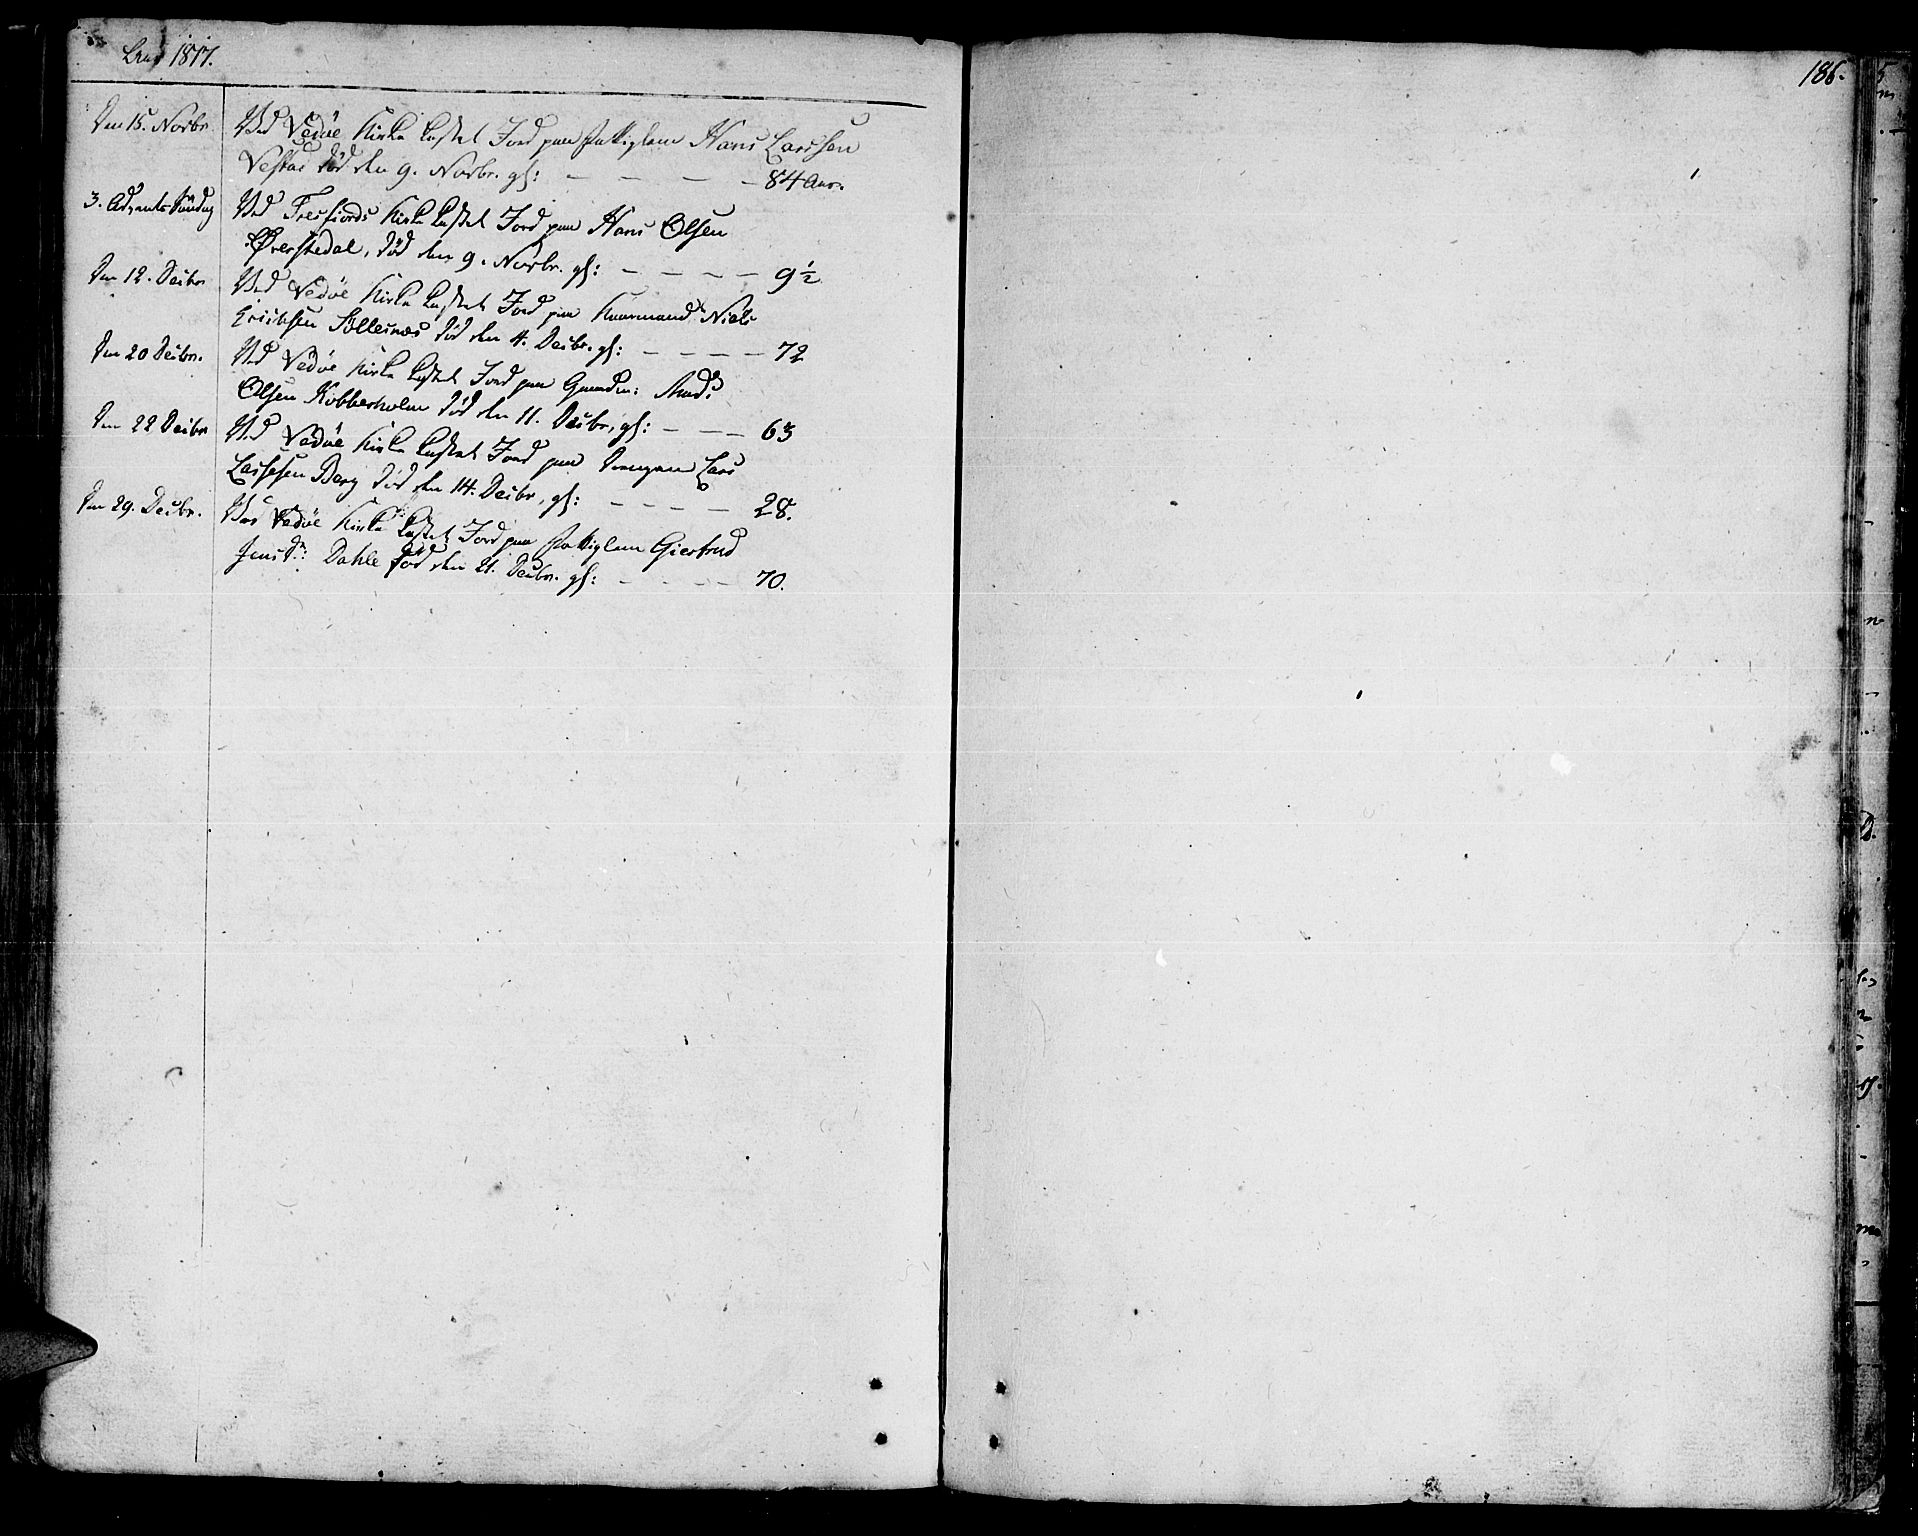 1817.
186.
Den 15. Novbr. Ved Vedøe Kirke kastet Jord paa Fattiglem Hans Larssen
Vestad død den 9. Novbr. gl: — — — — 84 Aar.
3. Advents Søndag Ved Fresfiords Kirke kastet Jord paa Hans Olsen
Øverstedal, død den 9. Novbr. gl: — — — — 9½
Den 12. Decbr. Ved Vedøe Kirke kastet Jord paa Huusmand Niels
Erichsen Söllesnæs død den 4. Decbr. gl: — — — — 72
Den 20 Decbr. Ved Vedøe Kirke kastet Jord paa Gaardm: And:
Olsen Kobberholm død den 11. Decbr, gl: — — — 63
Den 22 Decbr. Ved Vedøe Kirke kastet Jord paa Drengen Lars
Lassesen Berg død den 14. Decbr, gl: — — — — 28.
Den 29. Decbr. Ved Vedøe Kirke kastet Jord paa Fattiglem Giertrud
Jensd: Dahle død den 21. Decbr. gl: — — — — 70.